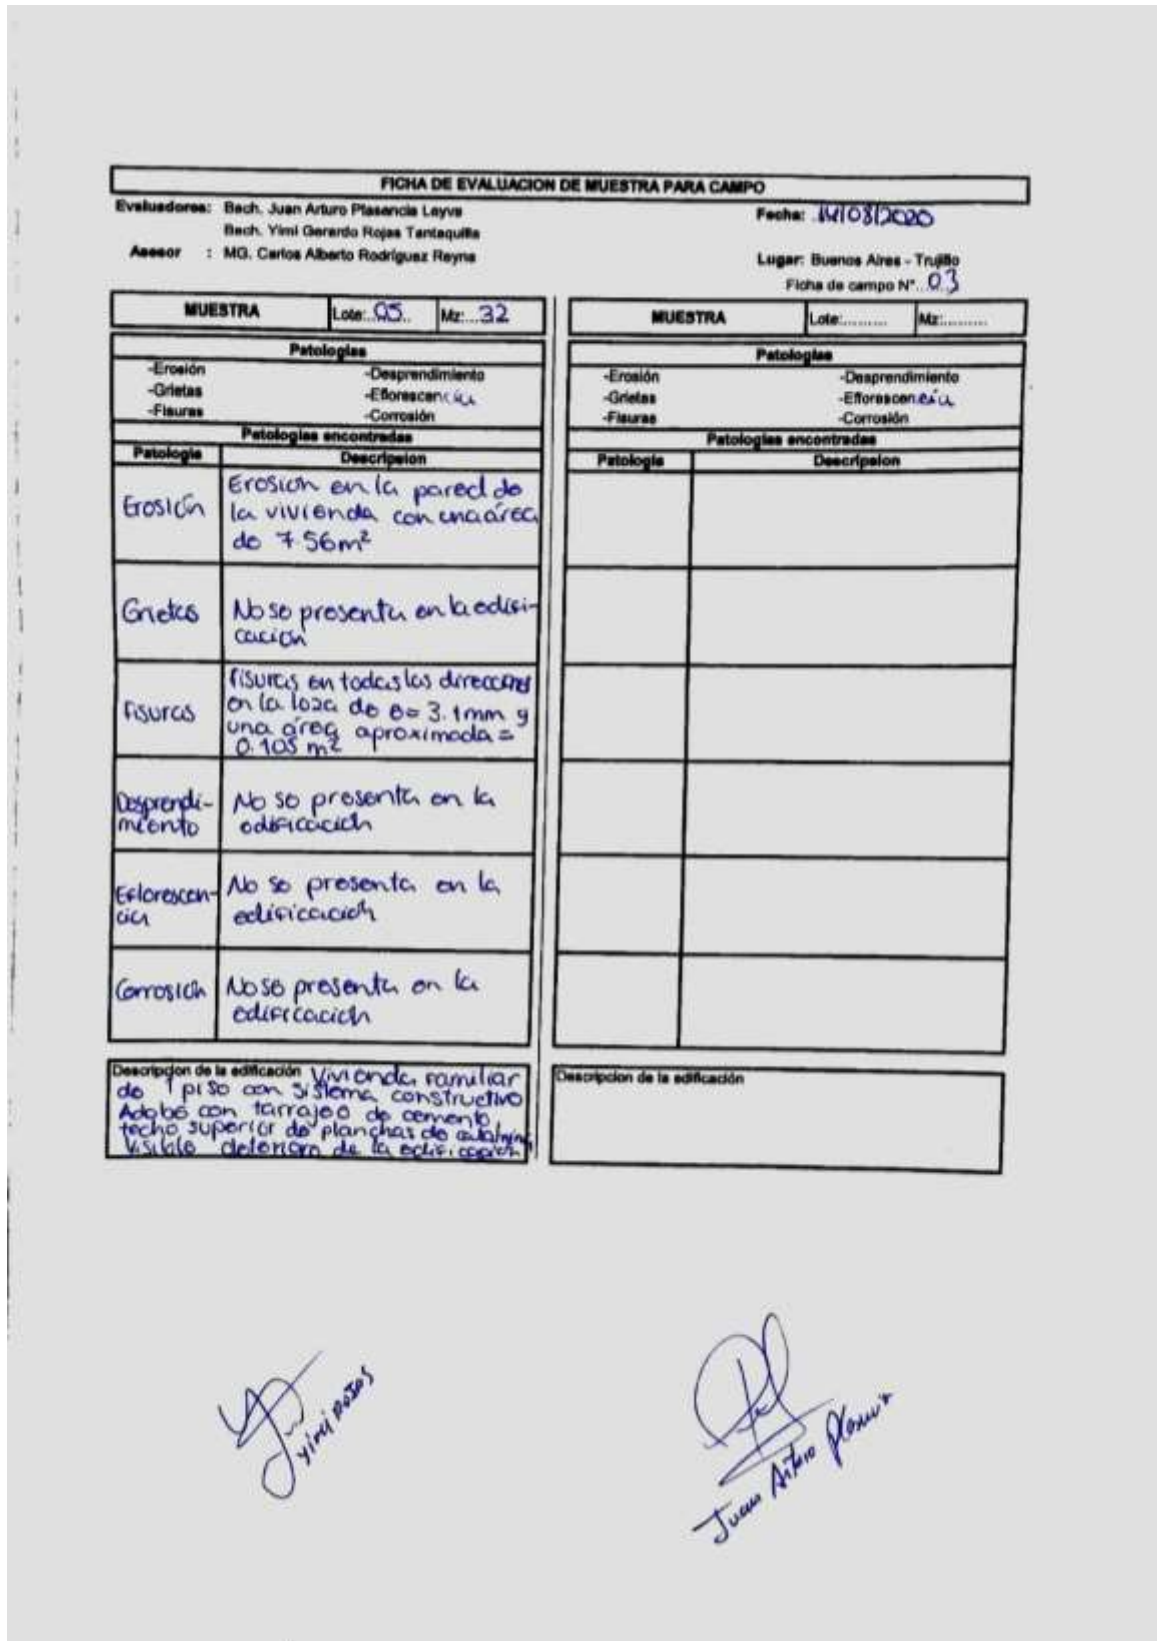 FICHA DE EVALUACION DE MUESTRA PARA CAMPO
Evaluadores: Bach. Juan Arturo Plasencia Leyva
Bach. Yimi Gerardo Rojas Tantaquilla
Asesor : MG. Carlos Alberto Rodríguez Reyna
Fecha: 14/08/2020
Lugar: Buenos Aires - Trujillo
Ficha de campo N°..03
MUESTRA Lote:..05.. Mz:...32
Patologias
-Erosión -Desprendimiento
-Grietas -Eflorescencia
-Fisuras -Corrosión
Patologias encontradas
Patologia Descripsion
Erosión
Erosion en la pared de
la vivienda con una área
de 7.56m²
Grietas
No se presenta en la edifi-
cación
Fisuras
Fisuras en todas las direcciones
en la loza de e= 3.1mm y
una área aproximada =
0.105 m²
Desprendi-
miento
No se presenta en la
edificación
Eflorescen-
cia
No se presenta en la
edificación
Corrosión
No se presenta en la
edificación
Descripcion de la edificación Vivienda familiar
de 1 piso con sistema constructivo
Adobe con tarrajeo de cemento,
techo superior de planchas de calamina
visible deterioro de la edificación
MUESTRA Lote:.......... Mz:..........
Patologias
-Erosión -Desprendimiento
-Grietas -Eflorescencia
-Fisuras -Corrosión
Patologias encontradas
Patologia Descripsion
Descripcion de la edificación
Yimi Rojas
Juan Arturo Plasencia